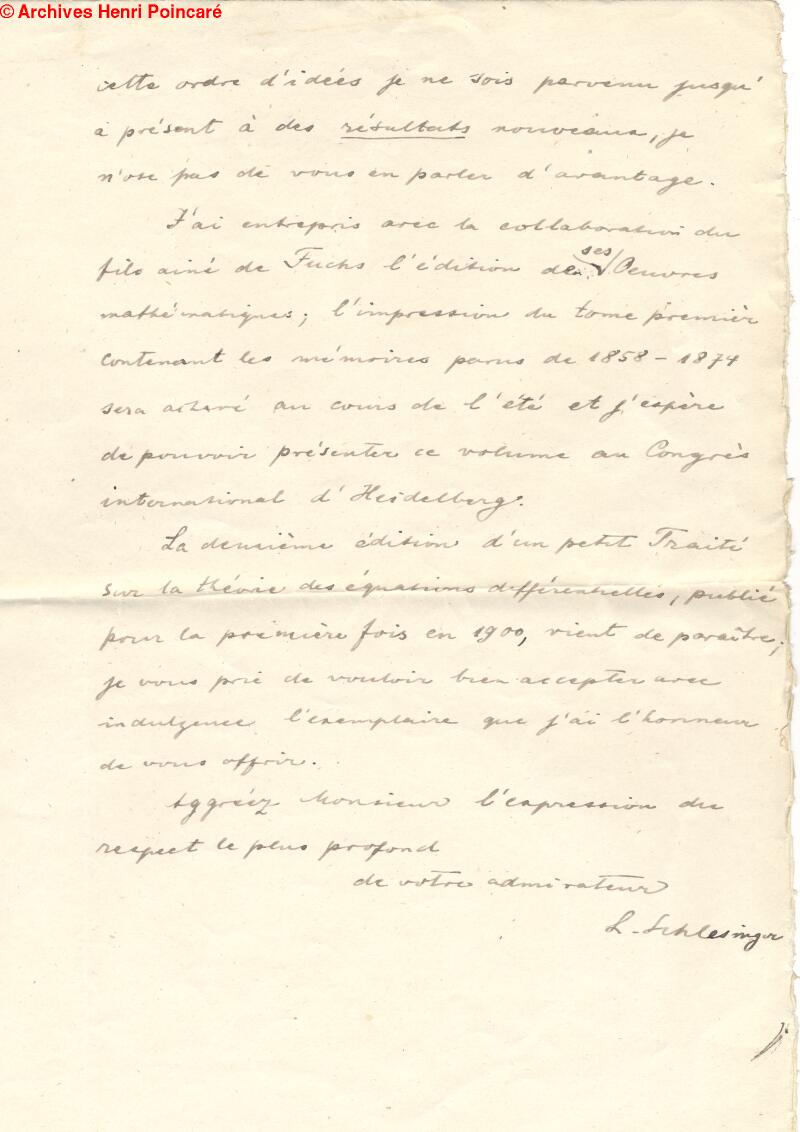 © Archives Henri Poincaré
cette ordre d'idées je ne sois parvenu jusqu'
à présent à des résultats nouveaux, je
n'ose pas de vous en parler d'avantage.
J'ai entrepris avec la collaboration du
fils ainé de Fuchs l'édition de ses Oeuvres
mathématiques; l'impression du tome premièr
contenant les mémoires parus de 1858 – 1874
sera achevé au cours de l'été et j'espère
de pouvoir présenter ce volume au Congrès
international d'Heidelberg.
La deuxième édition d'un petit Traité
sur la théorie des équations différentielles, publié
pour la première fois en 1900, vient de paraître;
je vous prie de vouloir bien accepter avec
indulgence l'exemplaire que j'ai l'honneur
de vous offrir.
Aggréez Monsieur l'expression du
respect le plus profond
de votre admirateur
L. Schlesinger